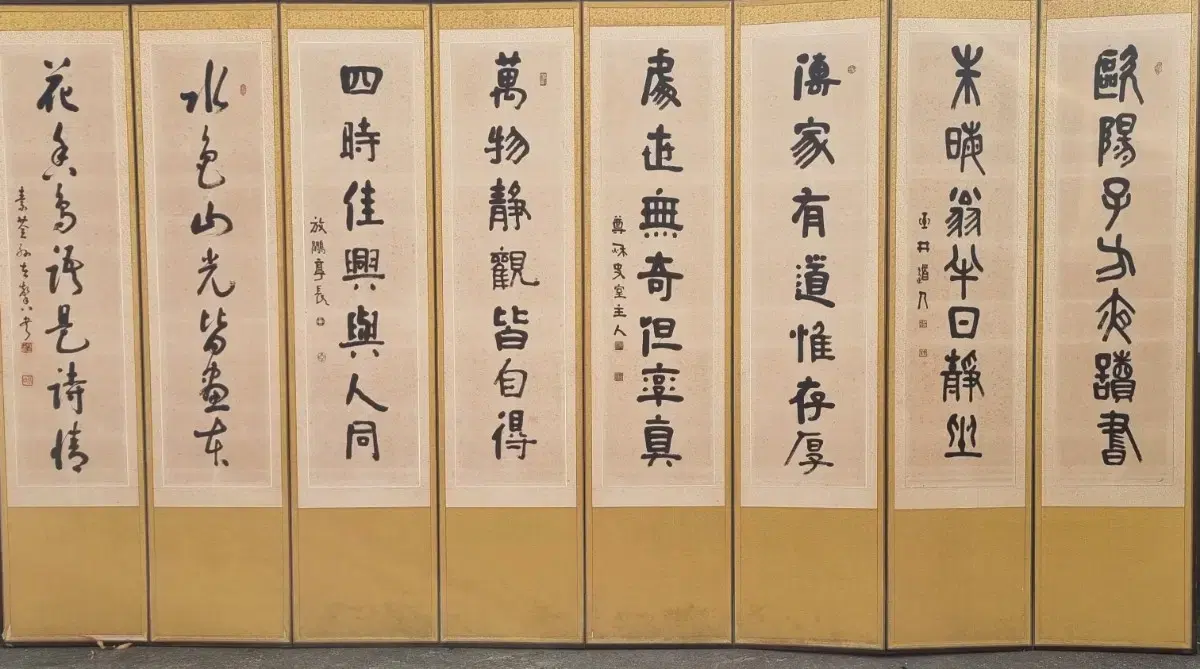 歐陽子方夜讀書
朱晦翁半日靜坐
井道人
傳家有道惟存厚
處世無奇但率真
尊秌史室主人
萬物靜觀皆自得
四時佳興與人同
放鵬亭長
水色山光皆畫本
花香鳥語是詩情
素荃孫在馨